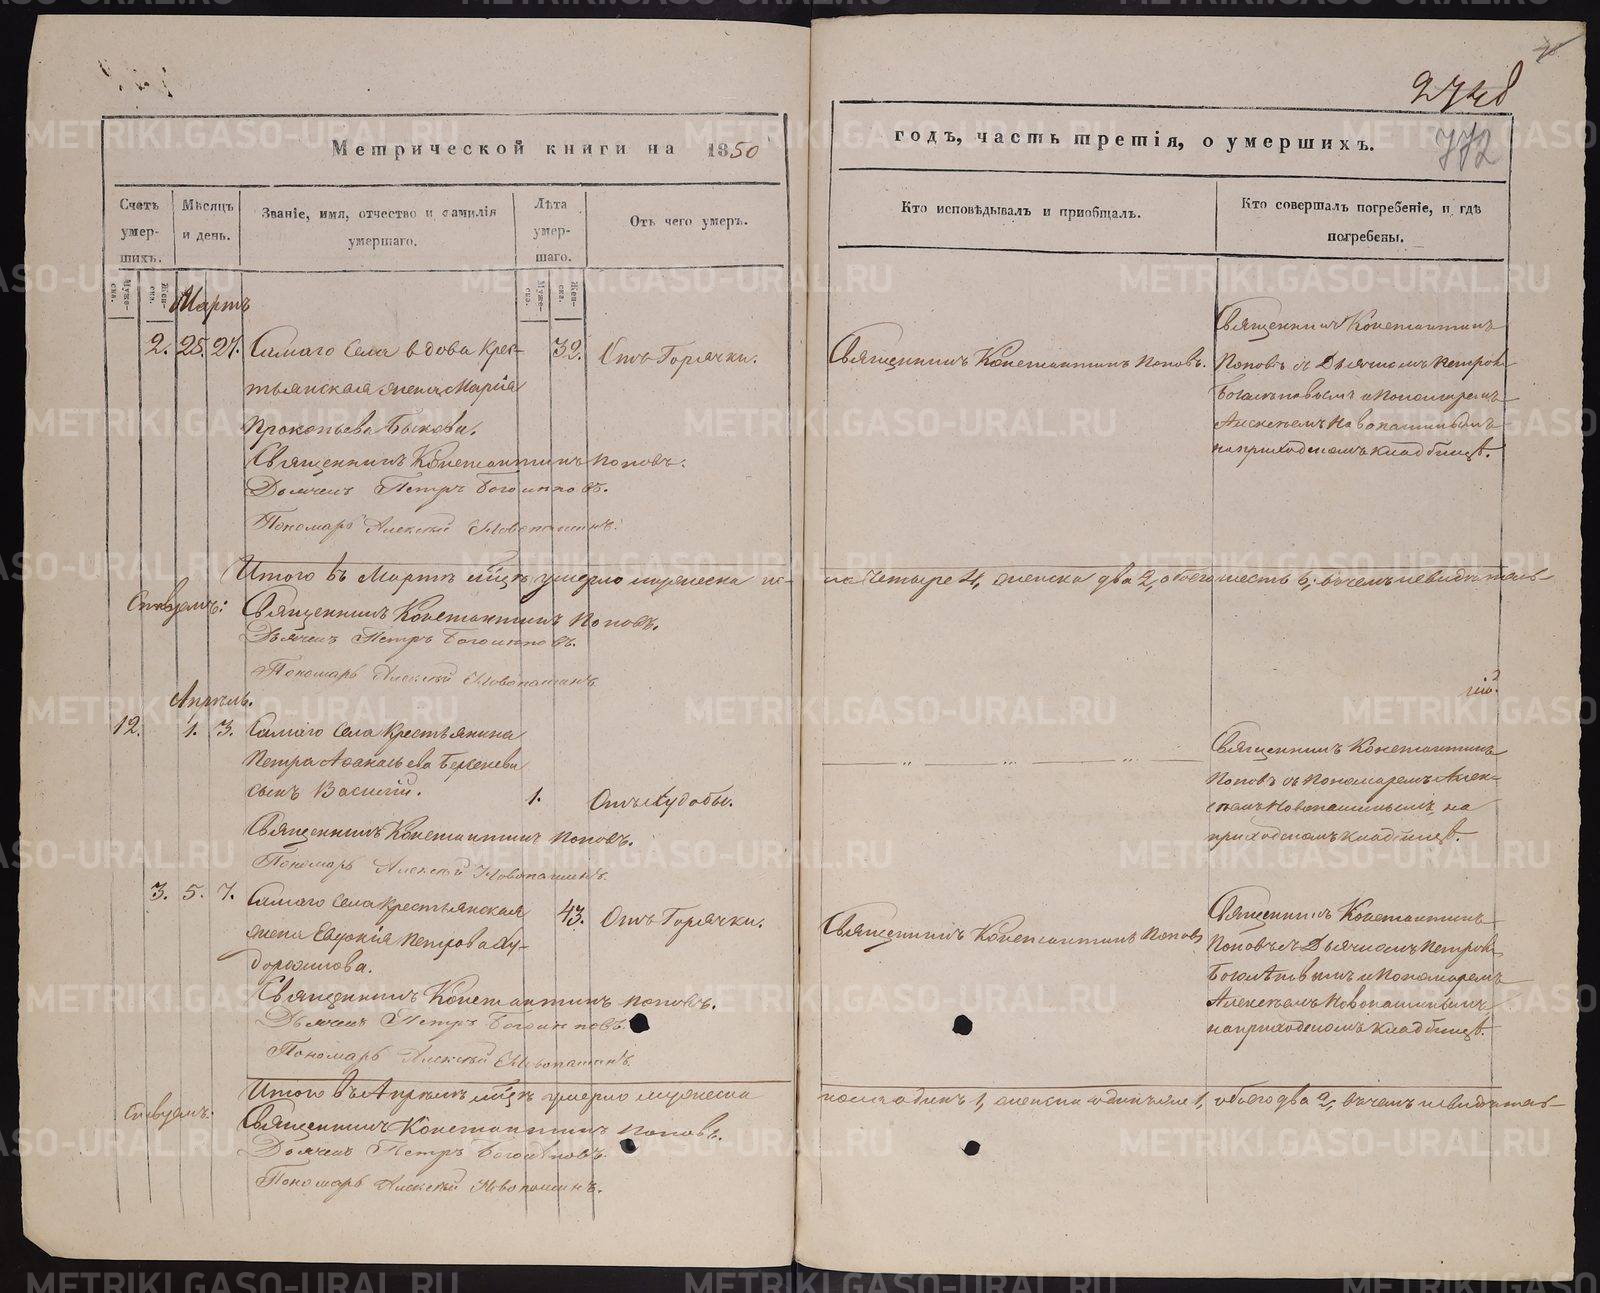 2748
772
Метрической книги на 1850
годъ, часть третія, о умершихъ.
Счетъ умер-шихъ.
Мѣсяцъ и день.
Званіе, имя, отчество и фамилія умершаго.
Лѣта умер-шаго.
Отъ чего умеръ.
Кто исповѣдывалъ и пріобщалъ.
Кто совершалъ погребеніе, и гдѣ погребены.
Муже-ска.
Жен-ска.
Муже-ска.
Жен-ска.
Мартъ
2. 25. 27. Самаго Села вдова крес-
тьянская жена Марія
Прокопьева Быкова.
32. Отъ Горячки.
Священникъ Константинъ Поповъ.
Священникъ Константинъ
Поповъ съ Дьячкомъ Петромъ
и Пономаремъ
Алексѣемъ Новопашинымъ
на приходскомъ кладбищѣ.
Священникъ Константинъ Поповъ.
Дьячекъ Петръ
Пономарь Алексѣй Новопашинъ.
Итого въ Мартѣ мцѣ умерло мужеска по-
ла четыре 4, женска два 2, обоего шесть 6, въ чемъ и свидѣтель-
Священникъ Константинъ Поповъ.
Дьячекъ Петръ
Пономарь Алексѣй Новопашинъ
Апрѣль.
12. 1. 3. Самаго Села крестьянина
Петра Аѳанасьева
сынъ Василій.
1. Отъ Худобы.
Священникъ Константинъ
Поповъ съ Пономаремъ Алек-
сѣемъ Новопашинымъ, на
приходскомъ кладбищѣ.
Священникъ Константинъ Поповъ.
Пономарь Алексѣй Новопашинъ.
3. 5. 7. Самаго Села крестьянская
жена Евдокія Петрова Ху-
дорожкова.
43. Отъ Горячки.
Священникъ Константинъ Поповъ
Священникъ Константинъ
Поповъ съ Дьячкомъ Петромъ
и Пономаремъ
Алексѣемъ Новопашинымъ,
на приходскомъ кладбищѣ.
Священникъ Константинъ Поповъ.
Дьячекъ Петръ
Пономарь Алексѣй Новопашинъ.
Итого въ Апрѣлѣ мцѣ умерло мужеска
пола одинъ 1, женска 1, обоего два 2, въ чемъ и свидѣтель-
Священникъ Константинъ Поповъ.
Дьячекъ Петръ
Пономарь Алексѣй Новопашинъ.
METRIKI.GASO-URAL.RU